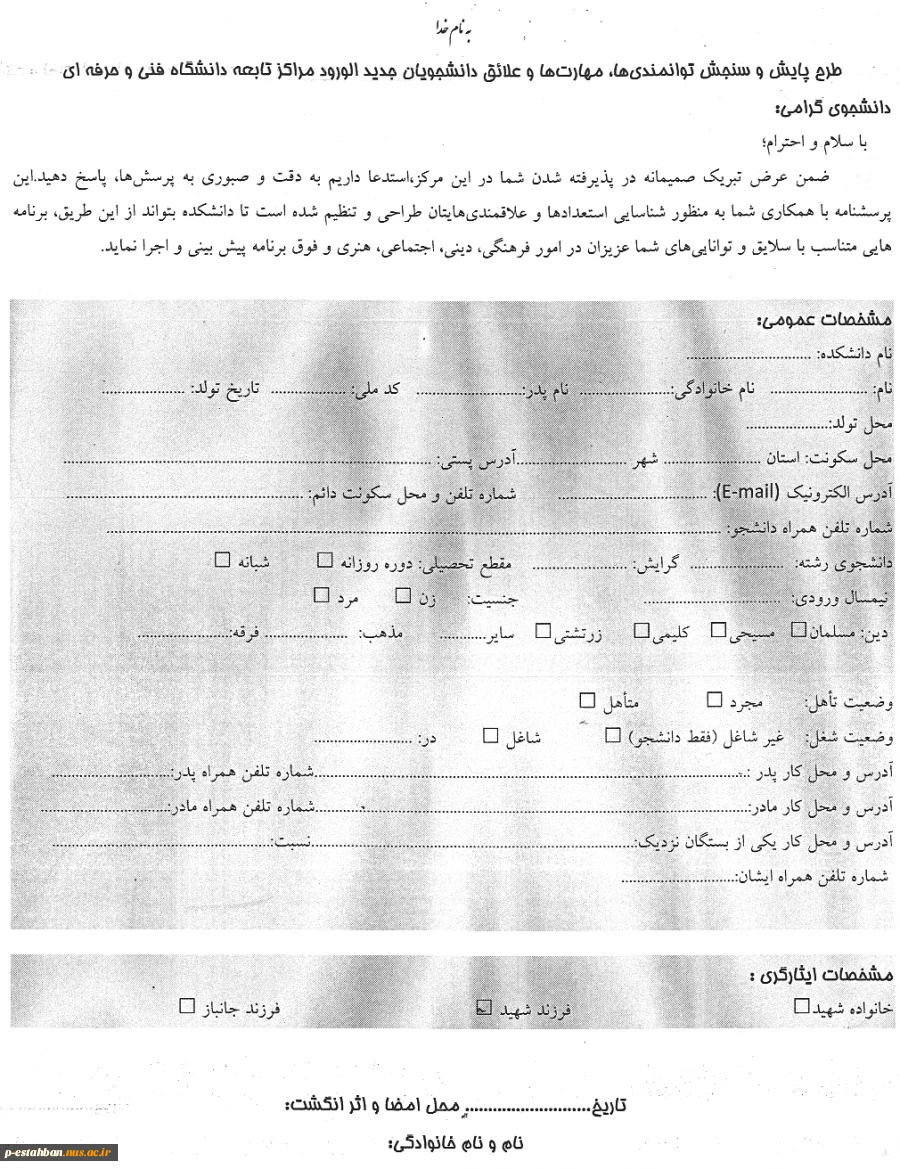 به نام خدا
طرح پایش و سنجش توانمندی‌ها، مهارت‌ها و علائق دانشجویان جدید الورود مراکز تابعه دانشگاه فنی و حرفه ای
دانشجوی گرامی:
با سلام و احترام؛
ضمن عرض تبریک صمیمانه در پذیرفته شدن شما در این مرکز،استدعا داریم به دقت و صبوری به پرسش‌ها، پاسخ دهید.این
پرسشنامه با همکاری شما به منظور شناسایی استعدادها و علاقمندی‌هایتان طراحی و تنظیم شده است تا دانشکده بتواند از این طریق، برنامه
هایی متناسب با سلایق و توانایی‌های شما عزیزان در امور فرهنگی، دینی، اجتماعی، هنری و فوق برنامه پیش بینی و اجرا نماید.
مشخصات عمومی:
نام دانشکده: ..............................
نام: ....................... نام خانوادگی:...................... نام پدر:.......................... کد ملی: .................. تاریخ تولد: ....................
محل تولد:....................
محل سکونت: استان ....................... شهر ..........................آدرس پستی: ........................................................................................
آدرس الکترونیک (E-mail): .................................... شماره تلفن و محل سکونت دائم: .........................................................
شماره تلفن همراه دانشجو: ....................................................................................................................................................
دانشجوی رشته: ...................... گرایش: ....................... مقطع تحصیلی: دوره روزانه □ شبانه □
نیمسال ورودی: ................................. جنسیت: زن □ مرد □
دین: مسلمان□ مسیحی□ کلیمی□ زرتشتی□ سایر........... مذهب: .................... فرقه:......................
وضعیت تأهل: مجرد □ متأهل □
وضعیت شغل: غیر شاغل (فقط دانشجو) □ شاغل □ در: .......................
آدرس و محل کار پدر :.......................................................................................................شماره تلفن همراه پدر:.............................
آدرس و محل کار مادر:.......................................................................................................شماره تلفن همراه مادر:...............................
آدرس و محل کار یکی از بستگان نزدیک:..............................................................................نسبت:.....................................................
شماره تلفن همراه ایشان:...........................
مشخصات ایثارگری :
خانواده شهید□ فرزند شهید □ فرزند جانباز □
تاریخ........................... محل امضا و اثر انگشت:
نام و نام خانوادگی:
p-estahban.nus.ac.ir